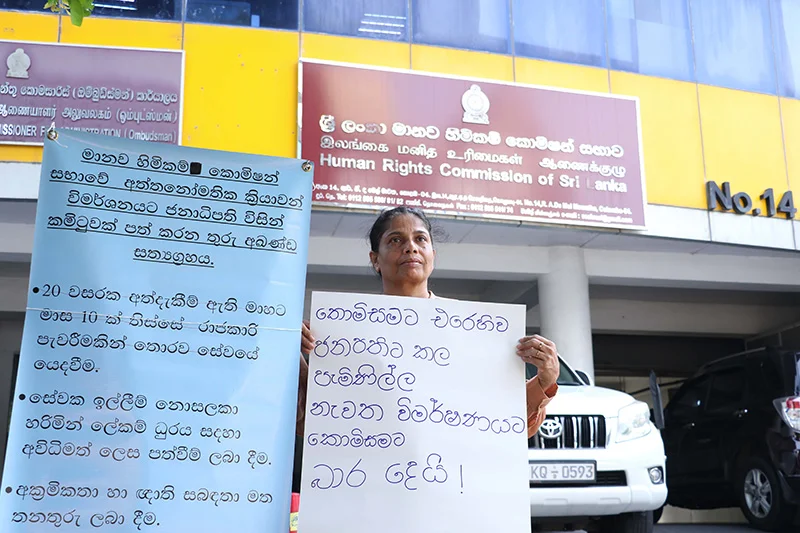 ශ්‍රී ලංකා මානව හිමිකම් කොමිෂන් සභාව
இலங்கை மனித உரிமைகள் ஆணைக்குழு
Human Rights Commission of Sri Lanka
No.14
මානව හිමිකම් කොමිෂන්
සභාවේ අත්තනෝමතික ක්‍රියාවන්
විමර්ශනයට ජනාධිපති විසින්
කමිටුවක් පත් කරන තුරු අඛණ්ඩ
සත්‍යග්‍රහය.
• 20 වසරක අත්දැකීම් ඇති මාහට
මාස 10 ක් තිස්සේ රාජකාරි
පැවරීමකින් තොරව සේවයේ
යෙදවීම.
• සේවක ඉල්ලීම් නොසලකා
හරිමින් ලේකම් ධුරය සදහා
අවිධිමත් ලෙස පත්වීම් ලබා දීම.
• අක්‍රමිකතා හා ඥාති සබඳතා මත
තනතුරු ලබා දීම.
කොමිසමට එරෙහිව
ජනපතිට කල
පැමිණිල්ල
නැවත විමර්ෂණයට
කොමිසමට
බාර දෙයි !
KQ-0593